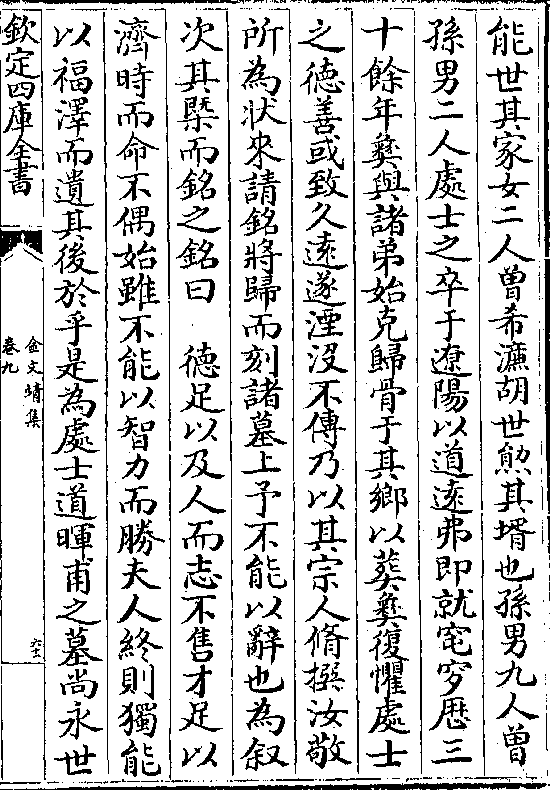 能世其家女二人曽希濂胡世勲其壻也孫男九人曽
孫男二人處士之卒于遼陽以道逺弗即就窀穸厯三
十餘年彜與諸弟始克歸骨于其鄉以葬彜復懼處士
之徳善或致久逺遂湮没不傳乃以其宗人脩撰汝敬
所為狀來請銘將歸而刻諸墓上予不能以辭也為叙
次其槩而銘之銘曰　徳足以及人而志不售才足以
濟時而命不偶始雖不能以智力而勝夫人終則獨能
以福澤而遺其後於乎是為處士道暉甫之墓尚永世
欽定四庫全書
金文靖集
卷九